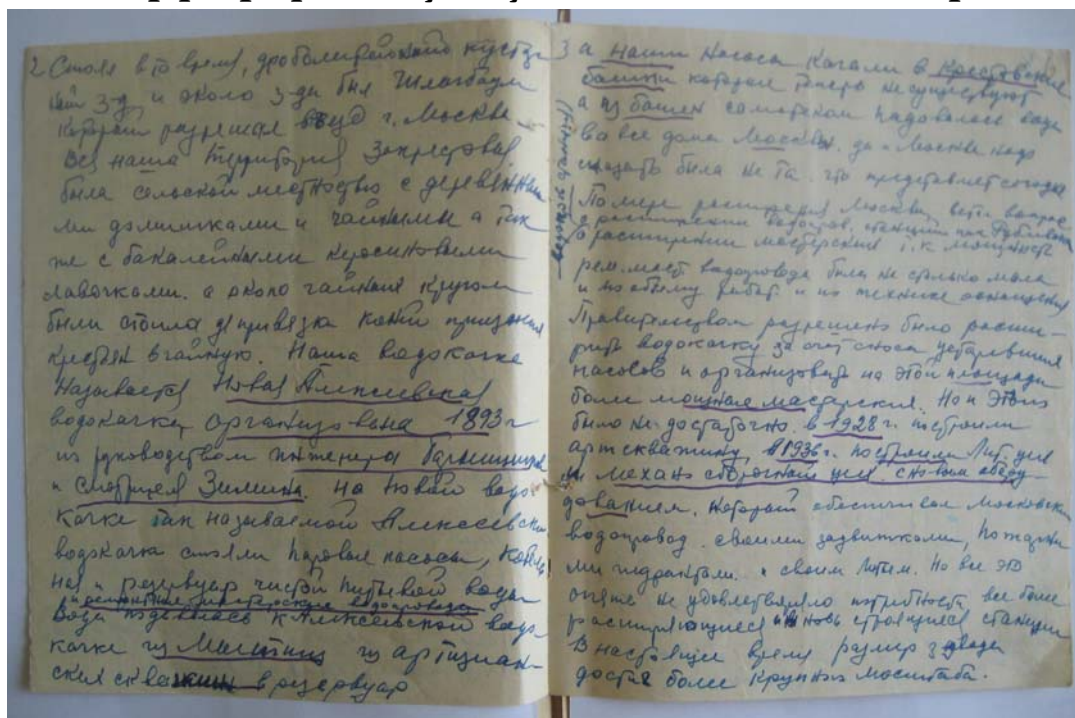 2 Стоял в то время, дроболитейный кустар
ный з-д, и около з-да был Шлагбаум
который разрешал везд г. Москве
Вся наша территория
была сельской местностью с деревянны
ми домишками и чайными а так
же с бакалейными керосиновыми
лавочками. а около чайных кругом
были стойла для привязка коней приезжих
крестьян в чайную. Наша водокачка
называется Новая Алексеевская
водокачка, организована 1893 г
из руководством инженера
и Зимина. На новой водо
качке так называемой Алексеевской
водокачка стояли паровые насосы,
ная и резервуар чистой питьевой воды
и ремонтные мастерские водопровода
Вода подавалась к Алексеевской водо-
качке из Мытищ из артизиан-
ских скважин в резервуар
3 а наши насоса качали в Крестовские
башни которой теперь не существуют
а из башен самотеком подавалась вода
во все дома Москвы. да и Москва надо
сказать была не та что представляет сегодня
По мере расширения Москвы, встал вопрос
о расширении водопров. станции
о расширении мастерских т.к. мощность
рем. маст. водопровода была не столько мала
и по объему работ и по технике оснащения
Правительством разрешено было расши-
рить водокачку за счет сноса устаревших
насосов и организовать на этой площади
более мощная мастерские. Но и этого
было не достаточно. в 1928 г. построили
арт скважину, в 1936 г. построили Лит. цех
и механо сборочный цех с новым обору-
дованием. который обеспечивал Московский
водопровод своими задвижками, Пожарны
ми гидрантами и своим Литьем. Но все это
опять не удовлетворяло потребность все более
расширяющиеся и вновь строящиеся станции
В настоящее время размер завода
достиг более крупных масштаба.